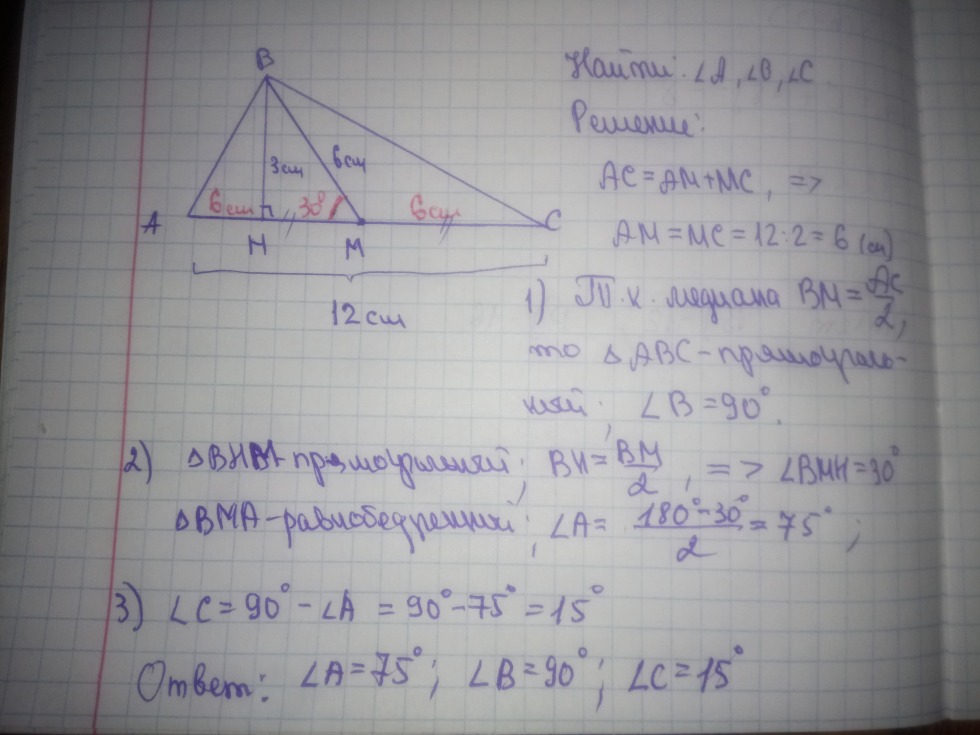 B
3см
6см
6см
30°
6см
A
H
M
C
12см
Найти: ∠A, ∠B, ∠C
Решение:
AC = AM + MC, =>
AM = MC = 12:2 = 6 (см)
1) Т.к. медиана BM = AC/2,
то △ABC - прямоуголь-
ный; ∠B = 90°.
2) △BHM - прямоугольный; BH = BM/2, => ∠BMH = 30°
△BMA - равнобедренный; ∠A = (180° - 30°)/2 = 75°;
3) ∠C = 90° - ∠A = 90° - 75° = 15°
Ответ: ∠A = 75°; ∠B = 90°; ∠C = 15°